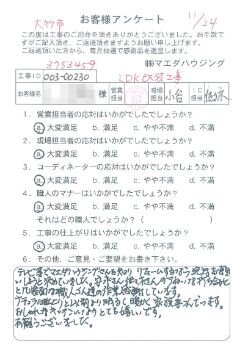 大竹市
お客様アンケート
11/24
この度は工事のご用命を頂きありがとうございました。お手数ですがご記入頂き、ご返送頂きますようお願い申し上げます。
ご返送頂いた方から、毎月抽選で感謝品を進呈します。
3753459
㈱マエダハウジング
工事ID
003-00230
LDK改装工事
様
営業担当
工事担当
小谷
IC担当
佐々木
1. 営業担当者の応対はいかがでしたでしょうか？
ⓐ 大変満足 b. 満足 c. やや不満 d. 不満
2. 工事担当者の応対はいかがでしたでしょうか？
ⓐ 大変満足 b. 満足 c. やや不満 d. 不満
3. コーディネーターの応対はいかがでしたでしょうか？
ⓐ 大変満足 b. 満足 c. やや不満 d. 不満
4. 職人のマナーはいかがでしたでしょうか？
ⓐ 大変満足 b. 満足 c. やや不満 d. 不満
それはどの職人でしょうか？（ ）
5. 工事の仕上がりはいかがでしたでしょうか？
ⓐ 大変満足 b. 満足 c. やや不満 d. 不満
6. その他、ご意見・ご要望をお書き下さい。
テレビ等でマエダハウジングさんを知り リフォームするなら 絶対お願い
しようと決めていました。
職人さん達の作業
感動しています。
以前より明るく 暖かく 家族喜んでいます。
おしゃれなキッチンに とても嬉しいです。
有難うございました。